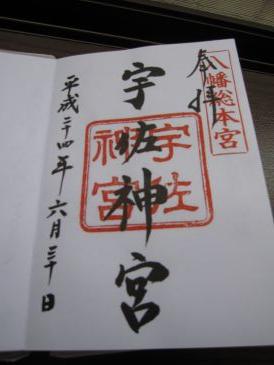 奉拝
八幡総本宮
宇佐神宮
宇佐
神宮
平成二十四年六月三十日